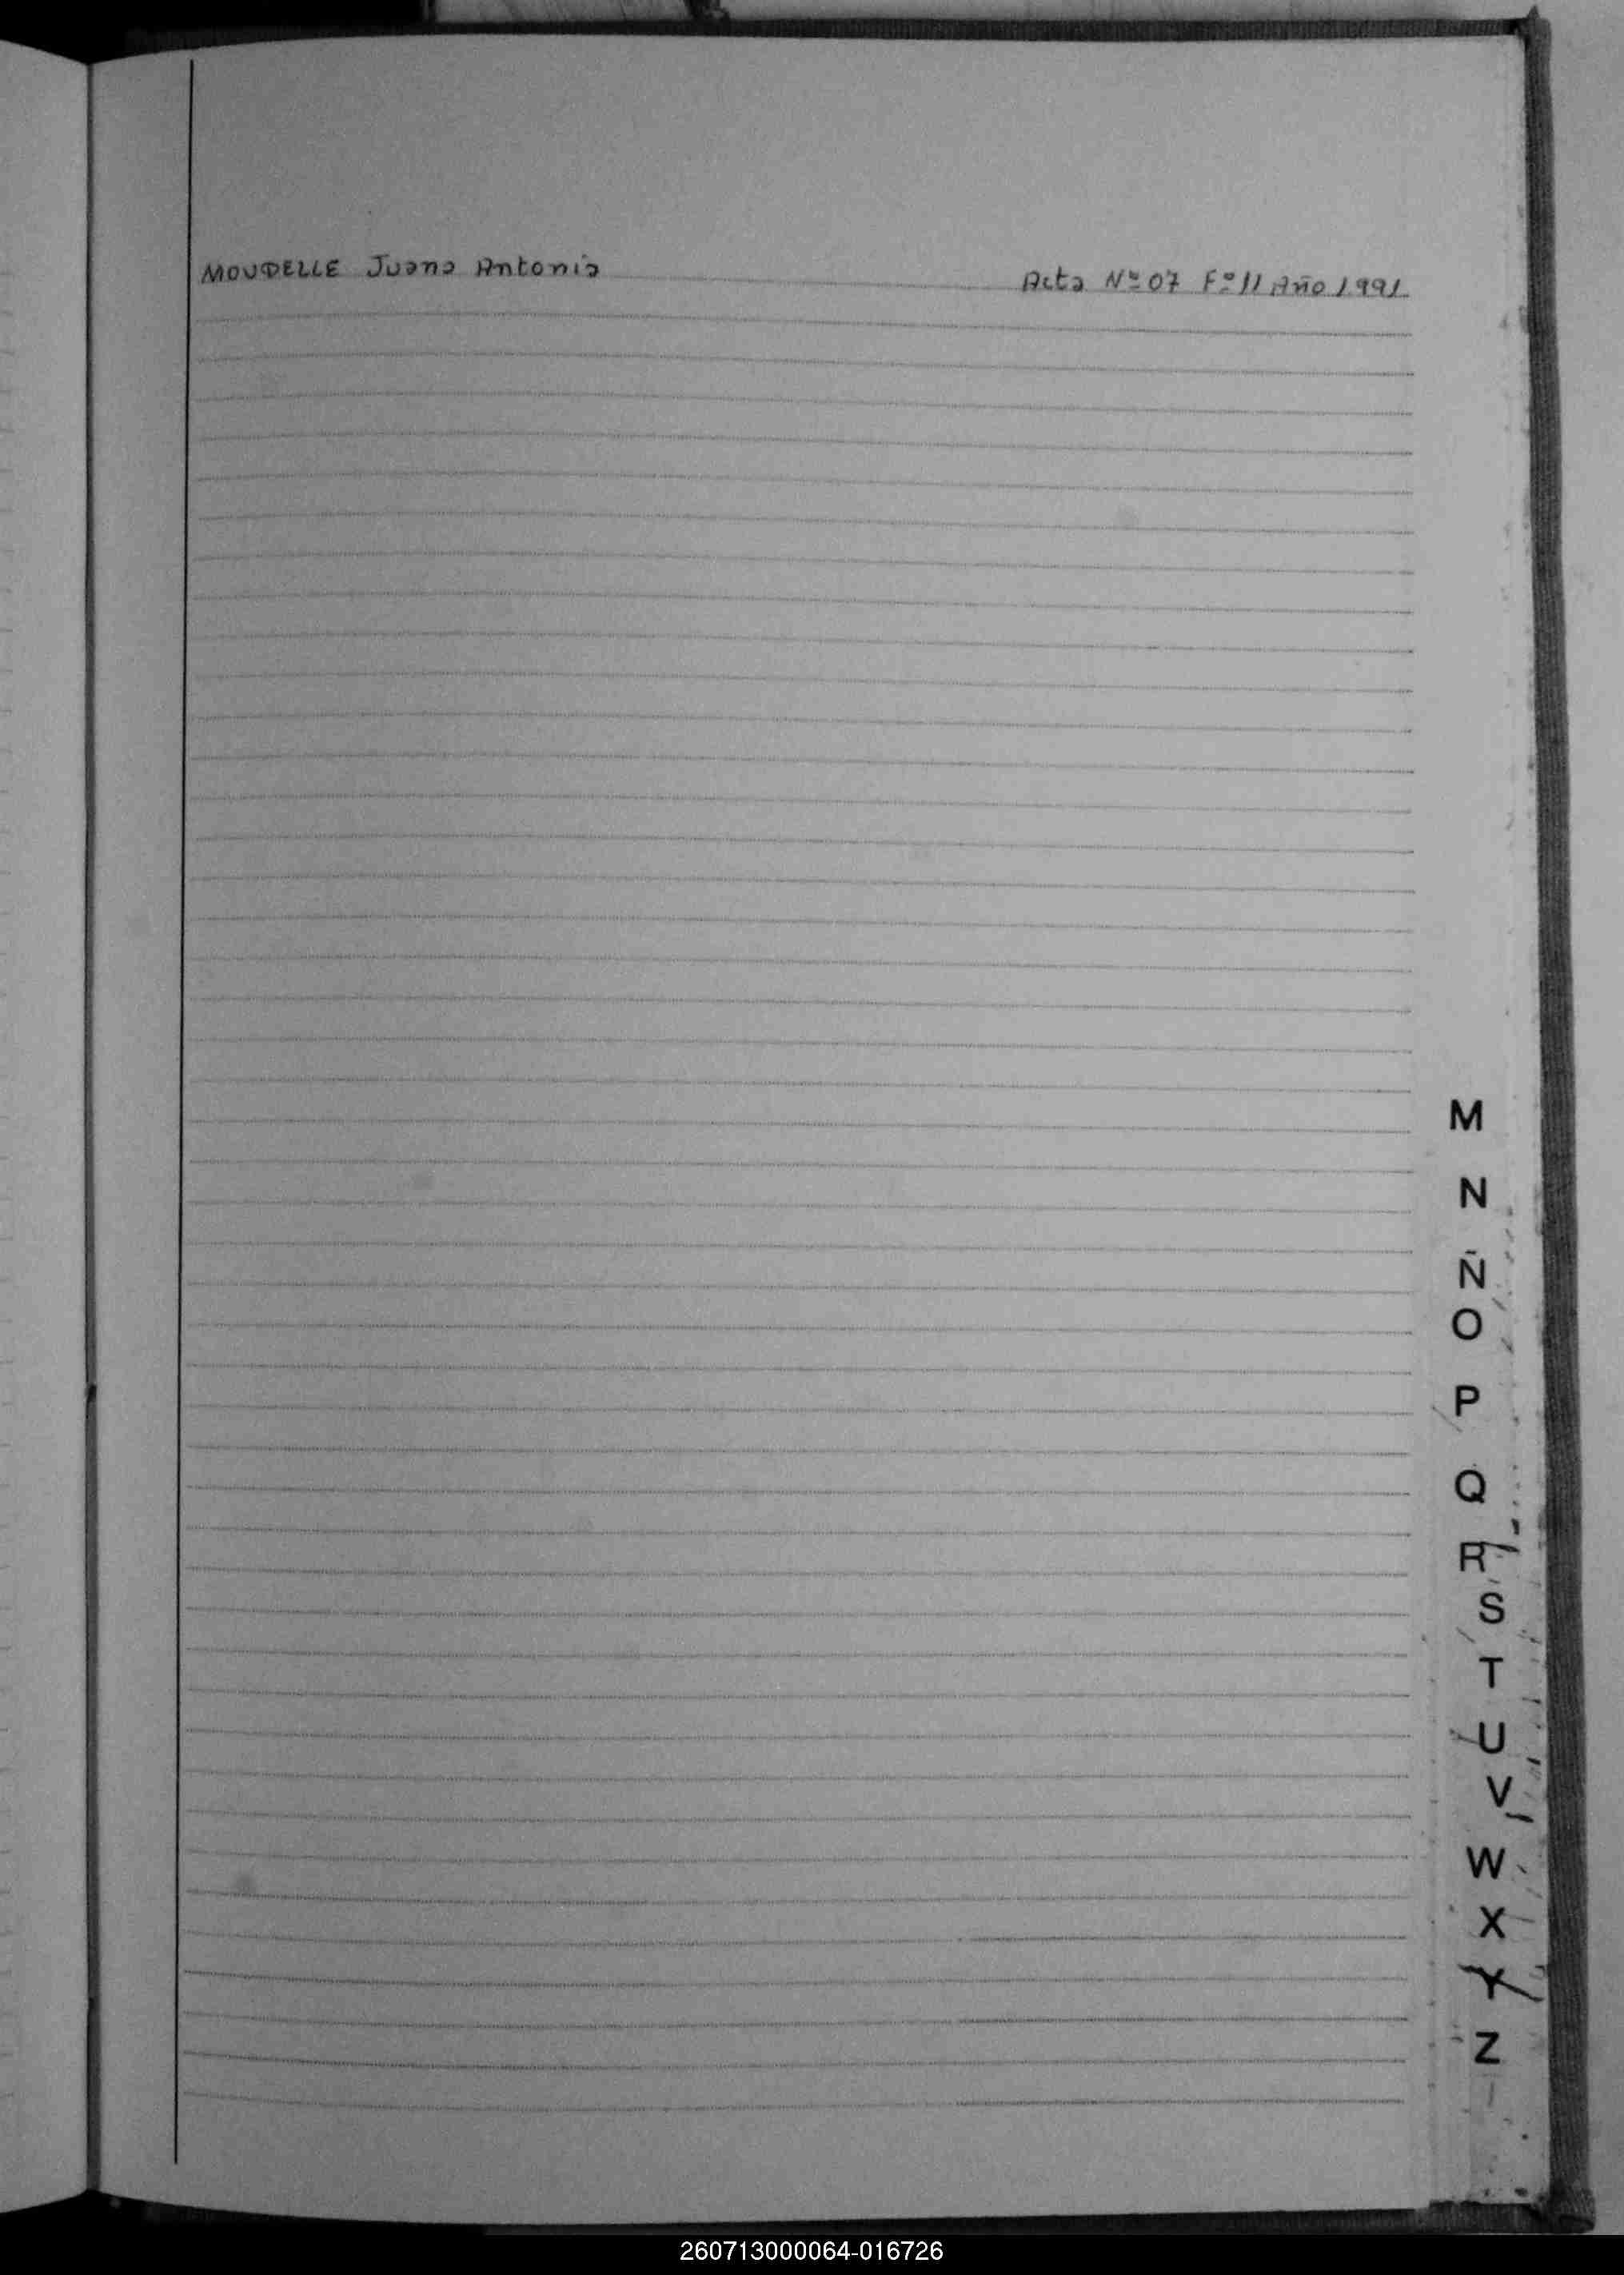 MOUDELLE Juana Antonia Acta Nº 07 Fº 11 Año 1991
M
N
Ñ
O
P
Q
R
S
T
U
V
W
X
Y
Z
260713000064-016726